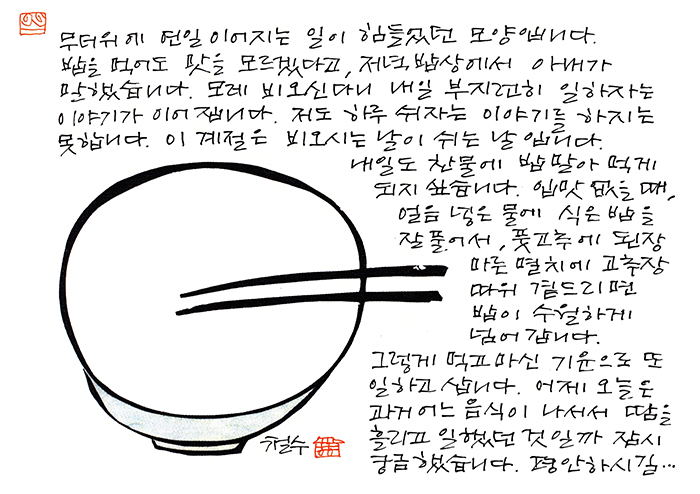 무더위에 연일 이어지는 일이 힘들었던 모양입니다.
밥을 먹어도 맛을 모르겠다고, 저녁 밥상에서 아내가
말했습니다. 모레 비오신다니 내일 부지런히 일하자는
이야기가 이어집니다. 저도 하루 쉬자는 이야기를 하지는
못합니다. 이 계절은 비오시는 날이 쉬는 날입니다.
내일도 찬물에 밥 말아 먹게
되지 싶습니다. 입맛 없을 때,
얼음 넣은 물에 식은 밥을
잘 풀어서, 풋고추에 된장
마른 멸치에 고추장
따위 곁드리면
밥이 수월하게
넘어갑니다.
그렇게 먹고 마신 기운으로 또
일하고 삽니다. 어제 오늘은
과거 어느 음식이 나서서 땀을
흘리고 일했던 것일까 잠시
궁금했습니다. 평안하시길…
철수